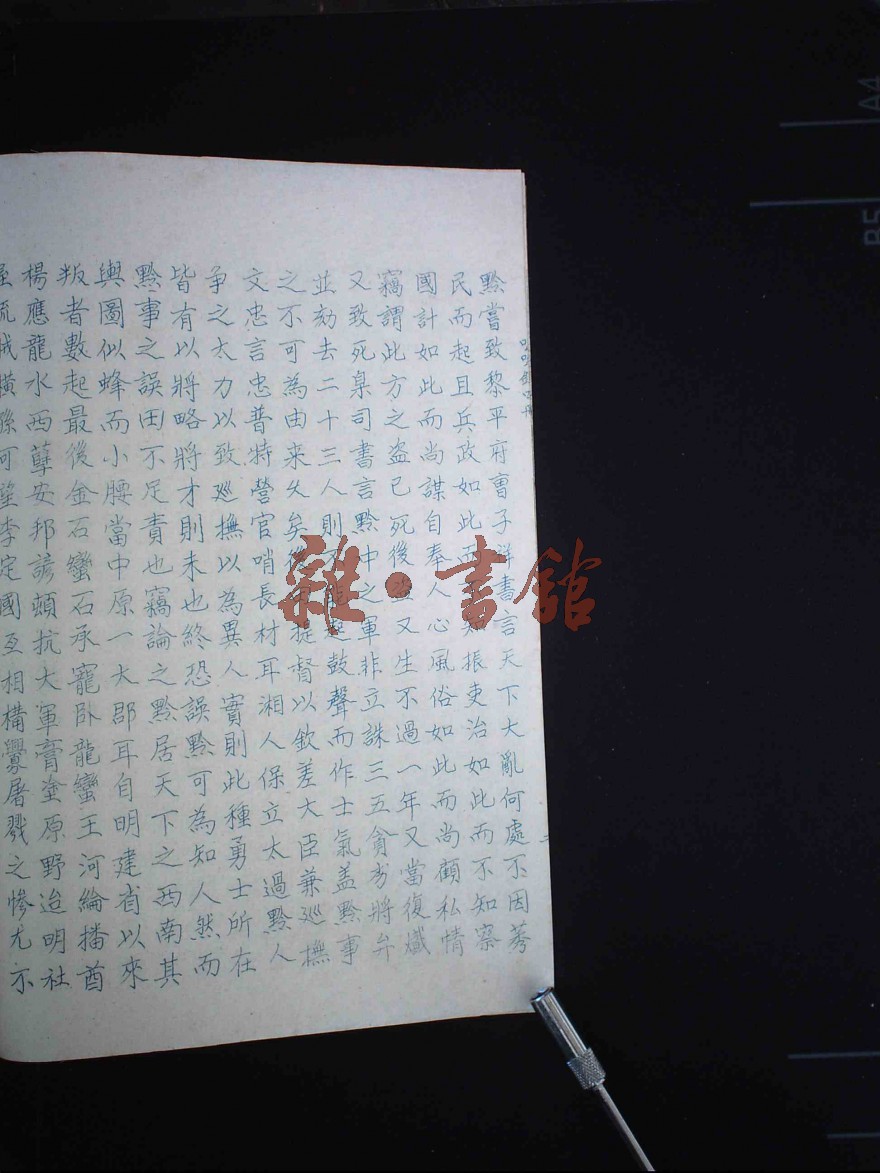 黔嘗致黎平府曹子祥書言天下大亂何處不因莠
民而起且兵政如此而不知振吏治如此而不知察
國計如此而尚謀自奉人心風俗如此而尚顧私情
竊謂此方之盜已死後盜又生不過一年又當復熾
又致死臬司書言黔中之軍非立誅三五貪劣將弁
並劾去二十三人則不能起鼓聲而作士氣蓋黔事
之不可為由来久矣後提督以欽差大臣兼巡撫
文忠言忠普特營官哨長材耳湘人保立太過黔人
争之太力以致巡撫以為異人實則此種勇士所在
皆有以將略將才則未也終恐誤黔可為知人然而
黔事之誤田不足責也竊論之黔居天下之西南其
輿圖似蜂而小腰當中原一大郡耳自明建省以來
叛者數起最後金石蠻石承寵臥龍蠻王河綸播酋
楊應龍水西孽安邦諺頓抗大軍膏塗原野迨明社
流賊橫孫可望李定國互相構釁屠戮之慘尤不
二
雜·書館
A4
B5